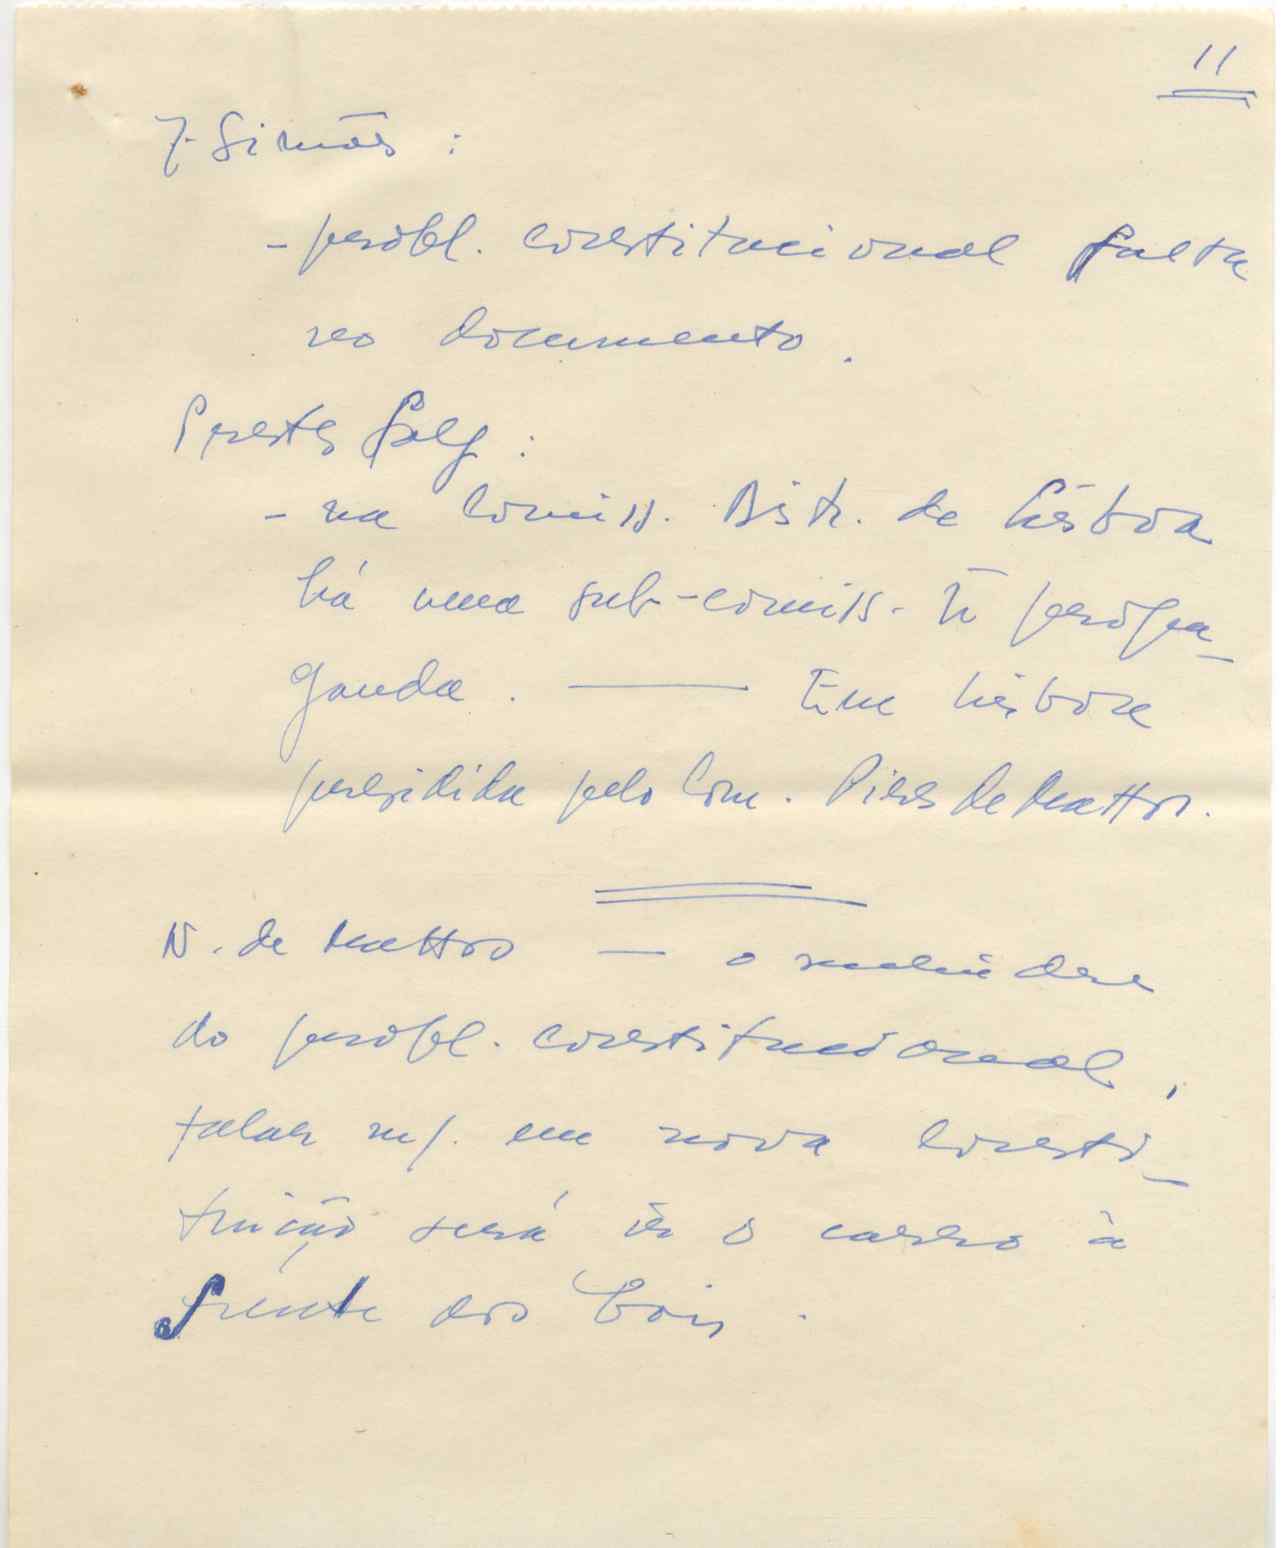 11
J. Simões :
- probl. constitucional falta
no documento.
Prestes Salg :
- na Comiss. Distr. de Lisboa
há uma sub-comiss. propa-
ganda. — Em Lisboa
presidida pelo Com. Pires de Mattos.
N. de Mattos — o
do probl. constitucional,
falar em nova consti-
tuição será o carro à
frente dos bois.